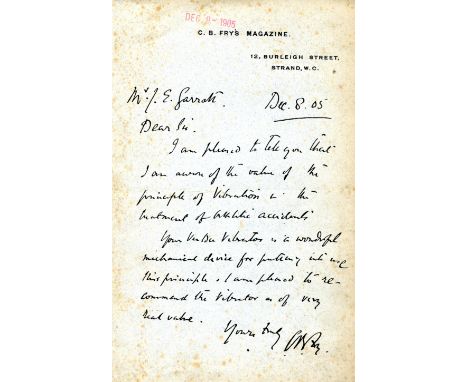 DEC 8 - 1905
C. B. FRY'S MAGAZINE.
12, BURLEIGH STREET,
STRAND, W.C.
Mr. J. E. Garratt. Dec. 8. 05
Dear Sir.
I am pleased to tell you that
I am aware of the value of the
principle of Vibration in the
treatment of athletic accidents
Your Vibrator is a wonderful
mechanical device for putting into use
this principle. I am pleased to re-
commend the Vibrator as of very
real value.
Yours truly
C B Fry.